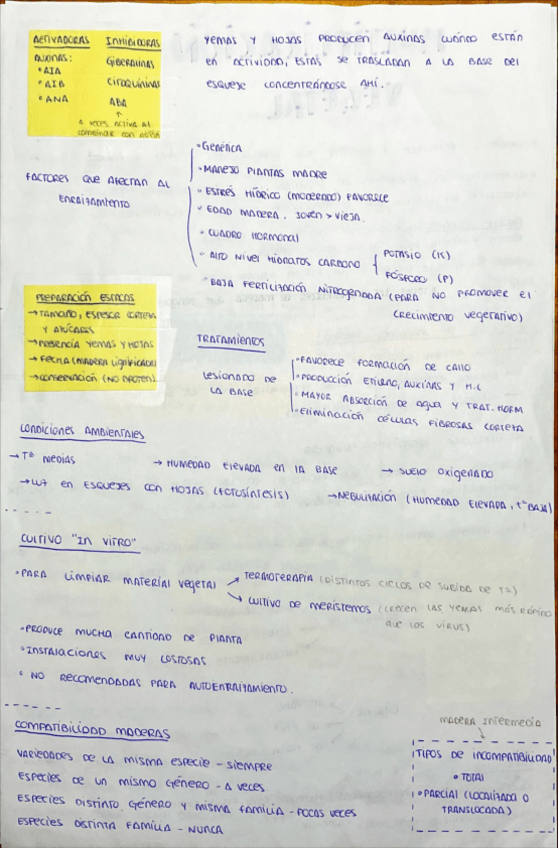 ACTIVADORAS INHIBIDORAS
AUXINAS: GIBERALINAS
• AIA CITOQUININAS
• AIB ABA
• ANA
A VECES ACTIVA AL
COMBINAR CON AUXINA
YEMAS Y HOJAS PRODUCEN AUXINAS CUANDO ESTÁN
EN ACTIVIDAD, ESTAS SE TRASLADAN A LA BASE DEL
ESQUEJE CONCENTRÁNDOSE AHÍ.
FACTORES QUE AFECTAN AL
ENRAIZAMIENTO
• GENÉTICA
• MANEJO PLANTAS MADRE
• ESTRÉS HÍDRICO (MODERADO) FAVORECE
• EDAD MADERA. JOVEN > VIEJA.
• CUADRO HORMONAL
• ALTO NIVEL HIDRATOS CARBONO
POTASIO (K)
FÓSFORO (P)
• BAJA FERTILIZACIÓN NITROGENADA (PARA NO PROMOVER EL
CRECIMIENTO VEGETATIVO)
PREPARACIÓN ESTACAS
→ TAMAÑO, ESPESOR CORTEZA
Y AZÚCARES
→ PRESENCIA YEMAS Y HOJAS
→ FECHA (MADERA LIGNIFICADA)
→ CONSERVACIÓN (NO BROTEN)
TRATAMIENTOS
LESIONADO DE
LA BASE
• FAVORECE FORMACIÓN DE CALLO
• PRODUCCIÓN ETILENO, AUXINAS Y H.C
• MAYOR ABSORCIÓN DE AGUA Y TRAT. HORM
• ELIMINACIÓN CÉLULAS FIBROSAS CORTEZA
CONDICIONES AMBIENTALES
→ Tª MEDIAS → HUMEDAD ELEVADA EN LA BASE → SUELO OXIGENADO
→ LUZ EN ESQUEJES CON HOJAS (FOTOSÍNTESIS) → NEBULIZACIÓN (HUMEDAD ELEVADA, tª BAJA)
CULTIVO "IN VITRO"
• PARA LIMPIAR MATERIAL VEGETAL
→ TERMOTERAPIA (DISTINTOS CICLOS DE SUBIDA DE Tª)
→ CULTIVO DE MERISTEMOS (CRECEN LAS YEMAS MÁS RÁPIDO
QUE LOS VIRUS)
• PRODUCE MUCHA CANTIDAD DE PLANTA
• INSTALACIONES MUY COSTOSAS
• NO RECOMENDADAS PARA AUTOENRAIZAMIENTO.
COMPATIBILIDAD MADERAS
VARIEDADES DE LA MISMA ESPECIE - SIEMPRE
ESPECIES DE UN MISMO GÉNERO - A VECES
ESPECIES DISTINTO GÉNERO Y MISMA FAMILIA - POCAS VECES
ESPECIES DISTINTA FAMILIA - NUNCA
MADERA INTERMEDIA
TIPOS DE INCOMPATIBILIDAD
• TOTAL
• PARCIAL (LOCALIZADA O
TRANSLOCADA)